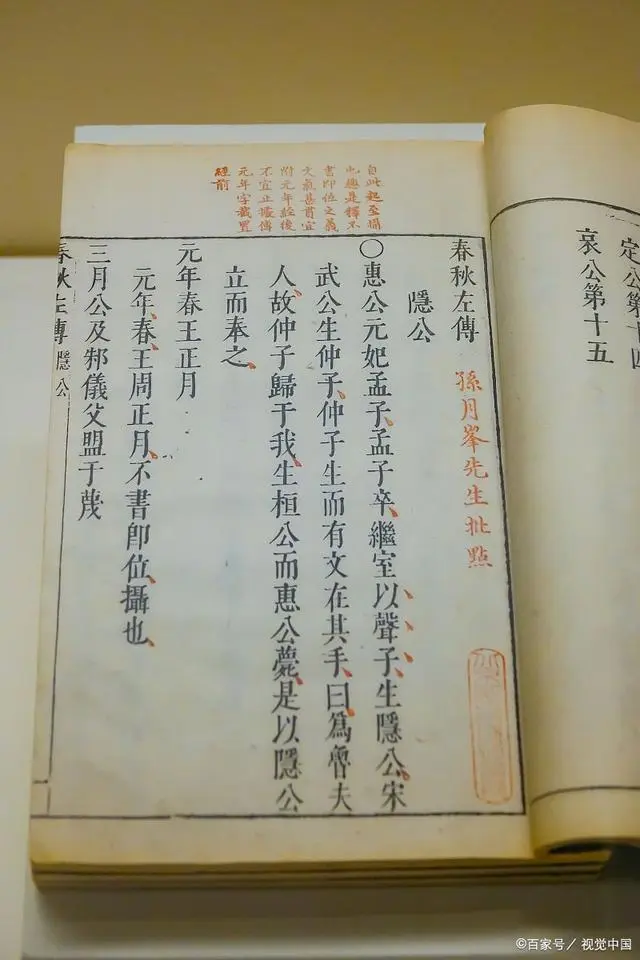 定公第十四
哀公第十五
自此起至攝
也總是釋不
書即位之義
文氣甚貫宜
附元年經後
不宜止據傳
元年字截置
經前
春秋左傳 孫月峯先生批點
隱公
○惠公元妃孟子孟子卒繼室以聲子生隱公宋
武公生仲子仲子生而有文在其手曰爲魯夫
人故仲子歸于我生桓公而惠公薨是以隱公
立而奉之
元年春王正月
元年春王周正月不書即位攝也
三月公及邾儀父盟于蔑
春秋左傳 隱公
©百家号/视觉中国